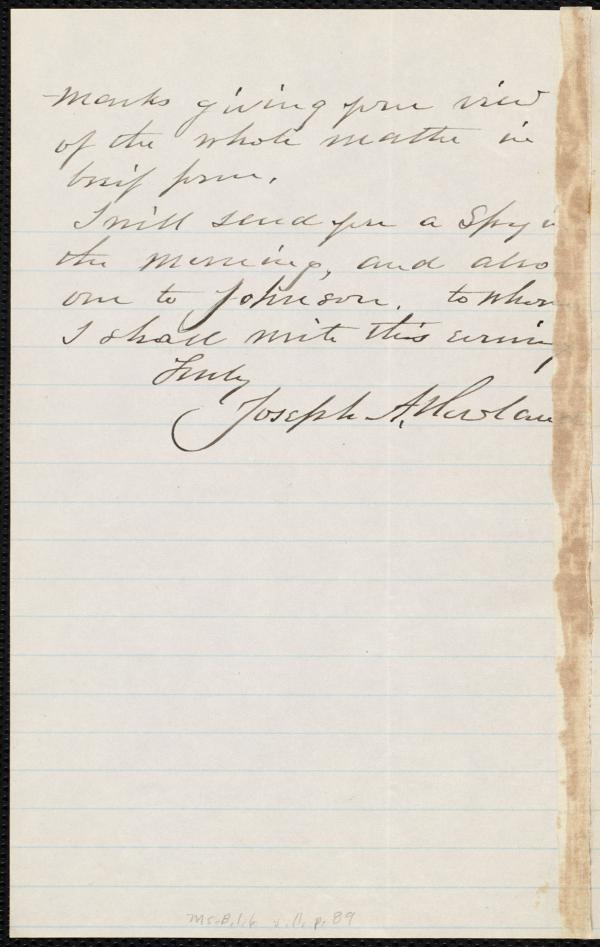 marks giving your view
of the whole matter in
brief form.
I will send you a Spy i
the morning, and also
one to Johnson. to whom
I shall write this evening
Truly
Joseph A. Howlan
Ms.B.1.6 v.11, p. 89